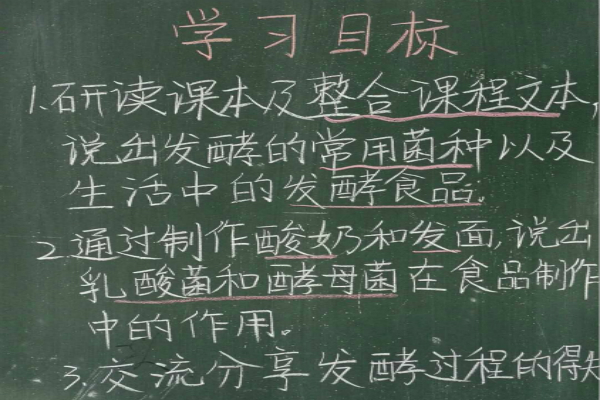 学习目标
1.研读课本及整合课程文本,
说出发酵的常用菌种以及
生活中的发酵食品。
2.通过制作酸奶和发面,说出
乳酸菌和酵母菌在食品制作
中的作用。
3.交流分享发酵过程的得失